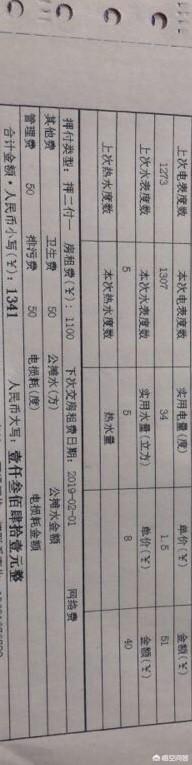 上次电表度数 本次电表度数 实用电量(度) 单价(¥) 金额(¥)
1273 1307 34 1.5 51
上次水表度数 本次水表度数 实用水量(立方) 单价(¥) 金额(¥)
5 5 8 40
上次热水度数 本次热水度数 热水量
押付类型: 押二付一 房租费(¥): 1100 下次交房租费日期: 2019-02-01 网络费
其他费 卫生费 50 公摊水(方) 公摊水金额
管理费 50 排污费 50 电损耗(度) 电损耗金额
合计金额·人民币小写(¥): 1341 人民币大写: 壹仟叁佰肆拾壹元整
悟空问答